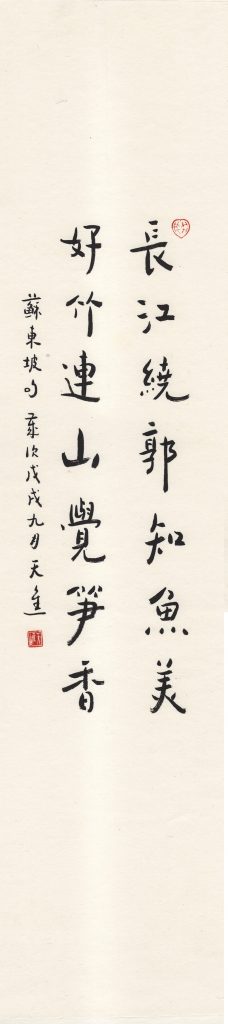 長江繞郭知魚美
好竹連山覺筍香
蘇東坡句 歲次戊戌九月 天進